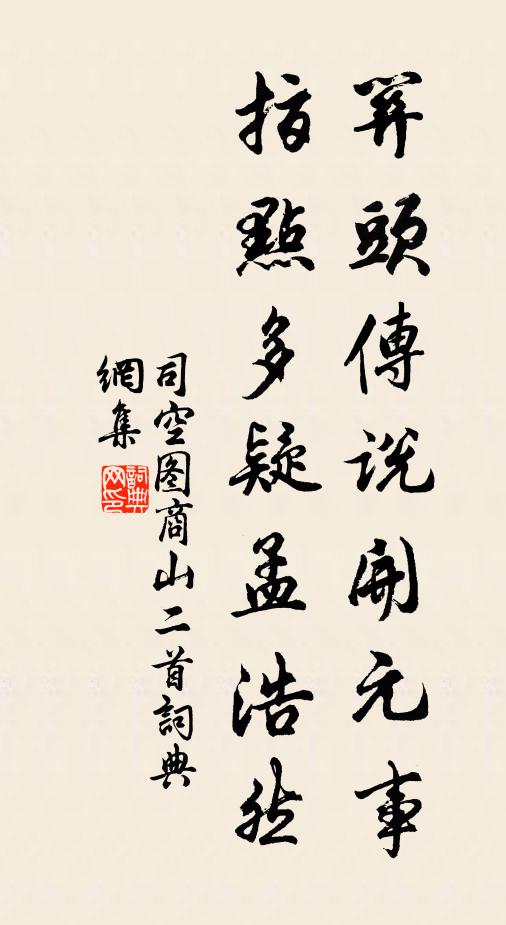 关頭傳說開元事
指點多疑孟浩然
司空图商山二首詞典
網集
詞典
网印